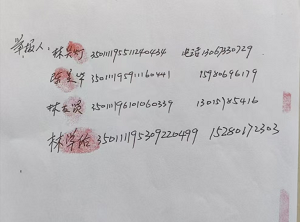 举报人：林 350111195511240434 电话 13067330729
350111195911160441 15980696179
林 350111196101060339 13015785416
林 350111195309220499 15280172303